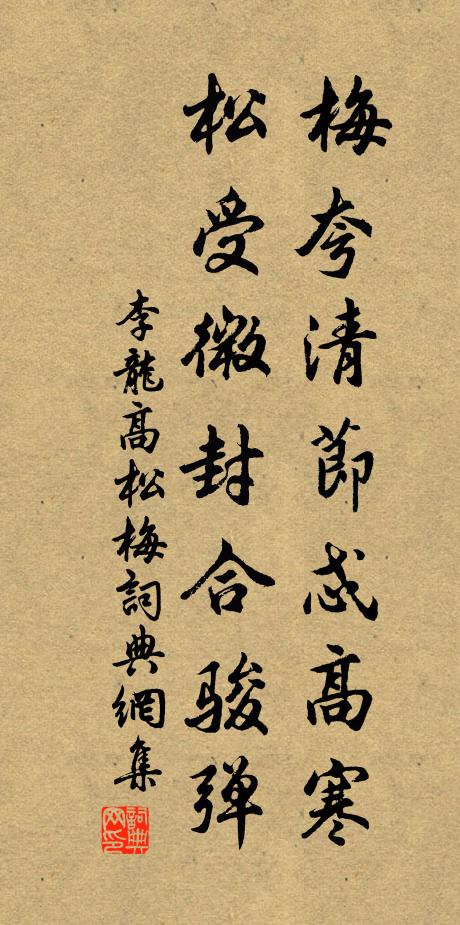 梅夸清節忒高寒
松受微封合骏弹
李龍高松梅詞典網集
詞典网印